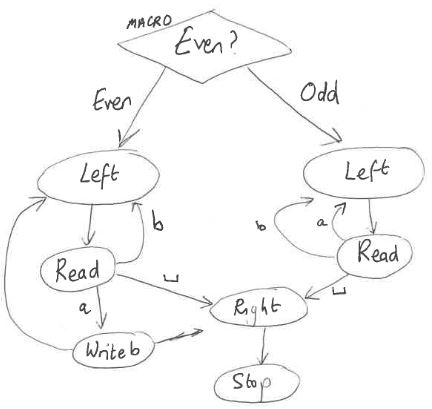 MACRO
Even?
Even
Odd
Left
Left
b
b
a
Read
Read
␣
␣
a
Right
Write b
Stop